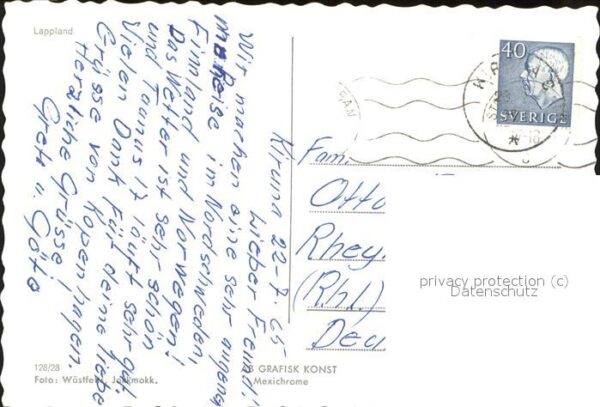 Lappland
Kiruna 22-7.65
Lieber Freund!
Wir machen eine sehr angenehme
Reise in Nordschweden,
Finnland und Norwegen!
Das Wetter ist sehr schön
und Taunus 17 läuft sehr gut.
Vielen Dank für deine liebe
Grüsse von Kopenhagen.
Herzliche Grüsse!
Greta u. Göta
40
SVERIGE
Fam.
Otto
Rhey
(Rhl.
Deu
privacy protection (c)
Datenschutz
128/28
Foto: Wästfelt, Jokkmokk.
AB GRAFISK KONST
Mexichrome